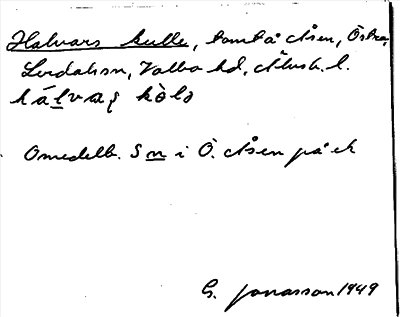 Halvars kulle, tomt å Åsen, Östra,
Lerdalsn, Valbo hd, Älvsb. l.
hálvaʂ kòlə
Omedelb. S n i Ö. Åsen på ek
G. Jonasson 1949